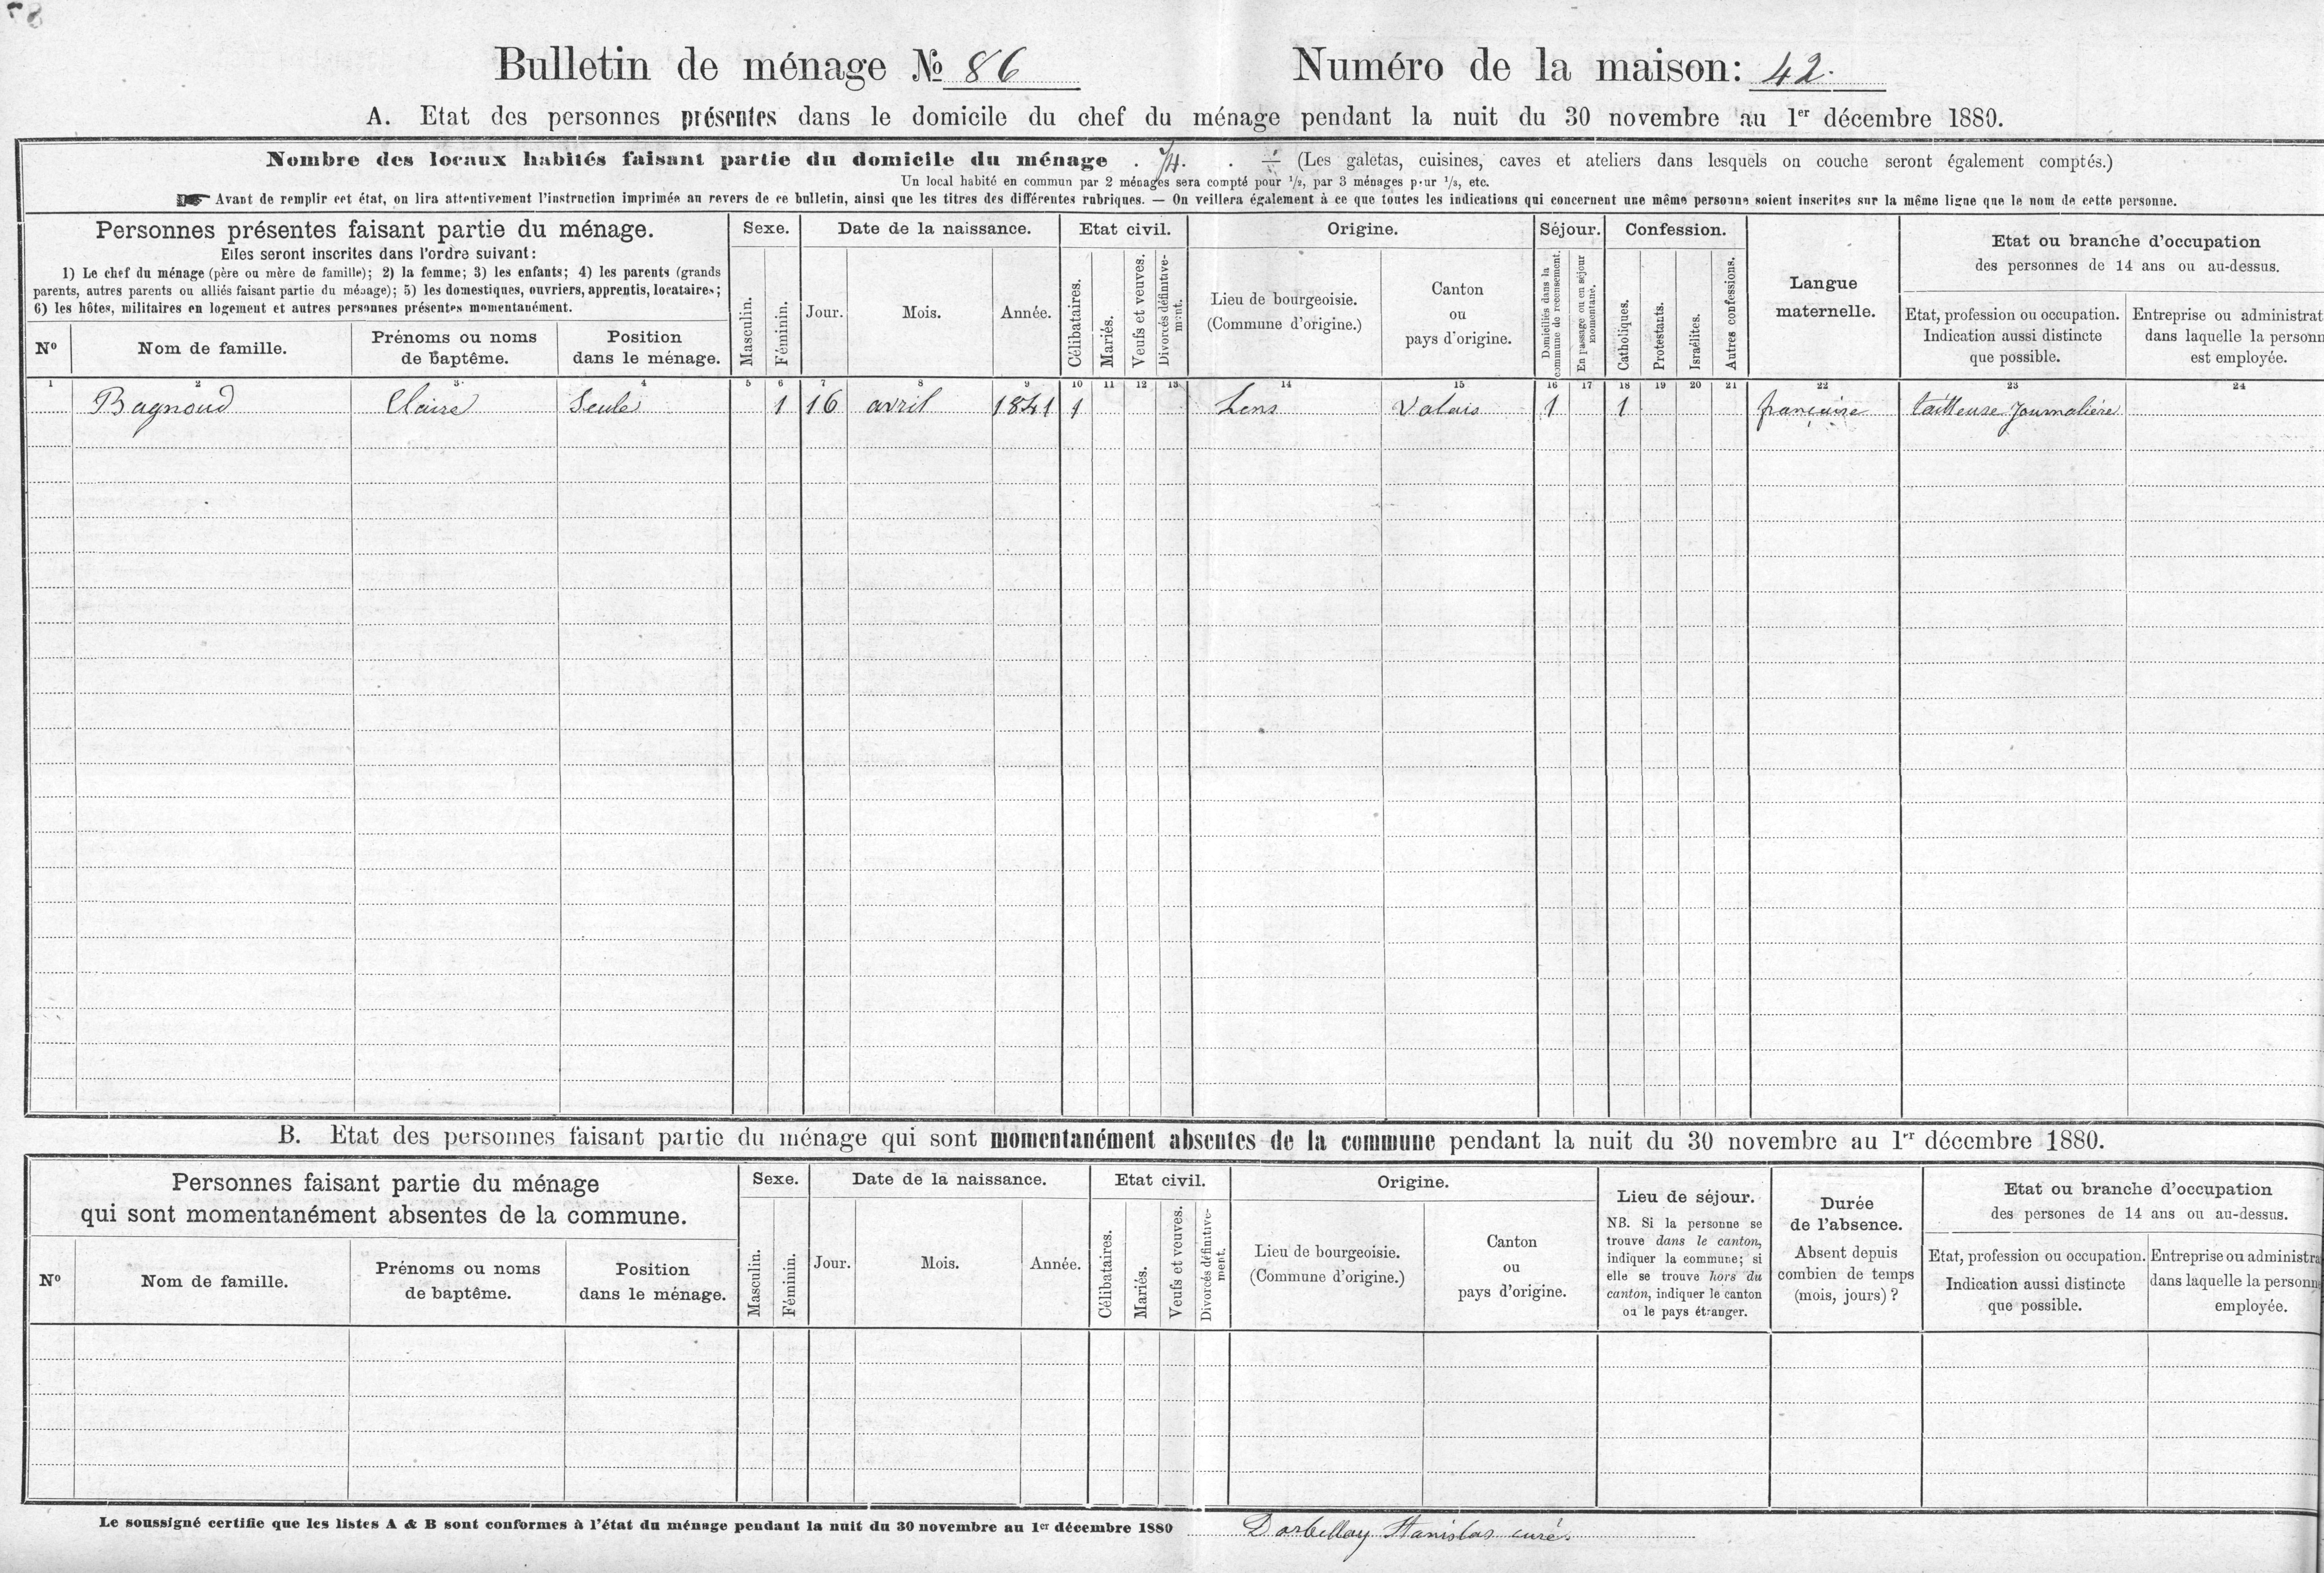 Bulletin de ménage № 86
Numéro de la maison: 42.
A. Etat des personnes présentes dans le domicile du chef du ménage pendant la nuit du 30 novembre au 1er décembre 1880.
Nombre des locaux habités faisant partie du domicile du ménage . . (Les galetas, cuisines, caves et ateliers dans lesquels on couche seront également comptés.)
Un local habité en commun par 2 ménages sera compté pour 1/2, par 3 ménages pour 1/3, etc.
Avant de remplir cet état, on lira attentivement l'instruction imprimée au revers de ce bulletin, ainsi que les titres des différentes rubriques. — On veillera également à ce que toutes les indications qui concernent une même personne soient inscrites sur la même ligne que le nom de cette personne.
Personnes présentes faisant partie du ménage.
Elles seront inscrites dans l'ordre suivant:
1) Le chef du ménage (père ou mère de famille); 2) la femme; 3) les enfants; 4) les parents (grands
parents, autres parents ou alliés faisant partie du ménage); 5) les domestiques, ouvriers, apprentis, locataires;
6) les hôtes, militaires en logement et autres personnes présentes momentanément.
No
Nom de famille.
Prénoms ou noms
de baptême.
Position
dans le ménage.
Sexe.
Masculin.
Féminin.
Date de la naissance.
Jour.
Mois.
Année.
Etat civil.
Célibataires.
Mariés.
Veufs et veuves.
Divorcés définitive-
ment.
Origine.
Lieu de bourgeoisie.
(Commune d'origine.)
Canton
ou
pays d'origine.
Séjour.
Domiciliés dans la
commune de recensement.
En passage ou en séjour
momentané.
Confession.
Catholiques.
Protestants.
Israélites.
Autres confessions.
Langue
maternelle.
Etat ou branche d'occupation
des personnes de 14 ans ou au-dessus.
Etat, profession ou occupation.
Indication aussi distincte
que possible.
Entreprise ou administrat
dans laquelle la personn
est employée.
1 2 3 4 5 6 7 8 9 10 11 12 13 14 15 16 17 18 19 20 21 22 23 24
Bagnoud Claire Seule 1 16 avril 1841 1 Lens Valais 1 1 française tailleuse Journalière
B. Etat des personnes faisant partie du ménage qui sont momentanément absentes de la commune pendant la nuit du 30 novembre au 1er décembre 1880.
Personnes faisant partie du ménage
qui sont momentanément absentes de la commune.
No
Nom de famille.
Prénoms ou noms
de baptême.
Position
dans le ménage.
Sexe.
Masculin.
Féminin.
Date de la naissance.
Jour.
Mois.
Année.
Etat civil.
Célibataires.
Mariés.
Veufs et veuves.
Divorcés définitive-
ment.
Origine.
Lieu de bourgeoisie.
(Commune d'origine.)
Canton
ou
pays d'origine.
Lieu de séjour.
NB. Si la personne se
trouve dans le canton,
indiquer la commune; si
elle se trouve hors du
canton, indiquer le canton
ou le pays étranger.
Durée
de l'absence.
Absent depuis
combien de temps
(mois, jours) ?
Etat ou branche d'occupation
des persones de 14 ans ou au-dessus.
Etat, profession ou occupation.
Indication aussi distincte
que possible.
Entreprise ou administra
dans laquelle la personn
employée.
Le soussigné certifie que les listes A & B sont conformes à l'état du ménage pendant la nuit du 30 novembre au 1er décembre 1880 Darbellay Stanislas curé.